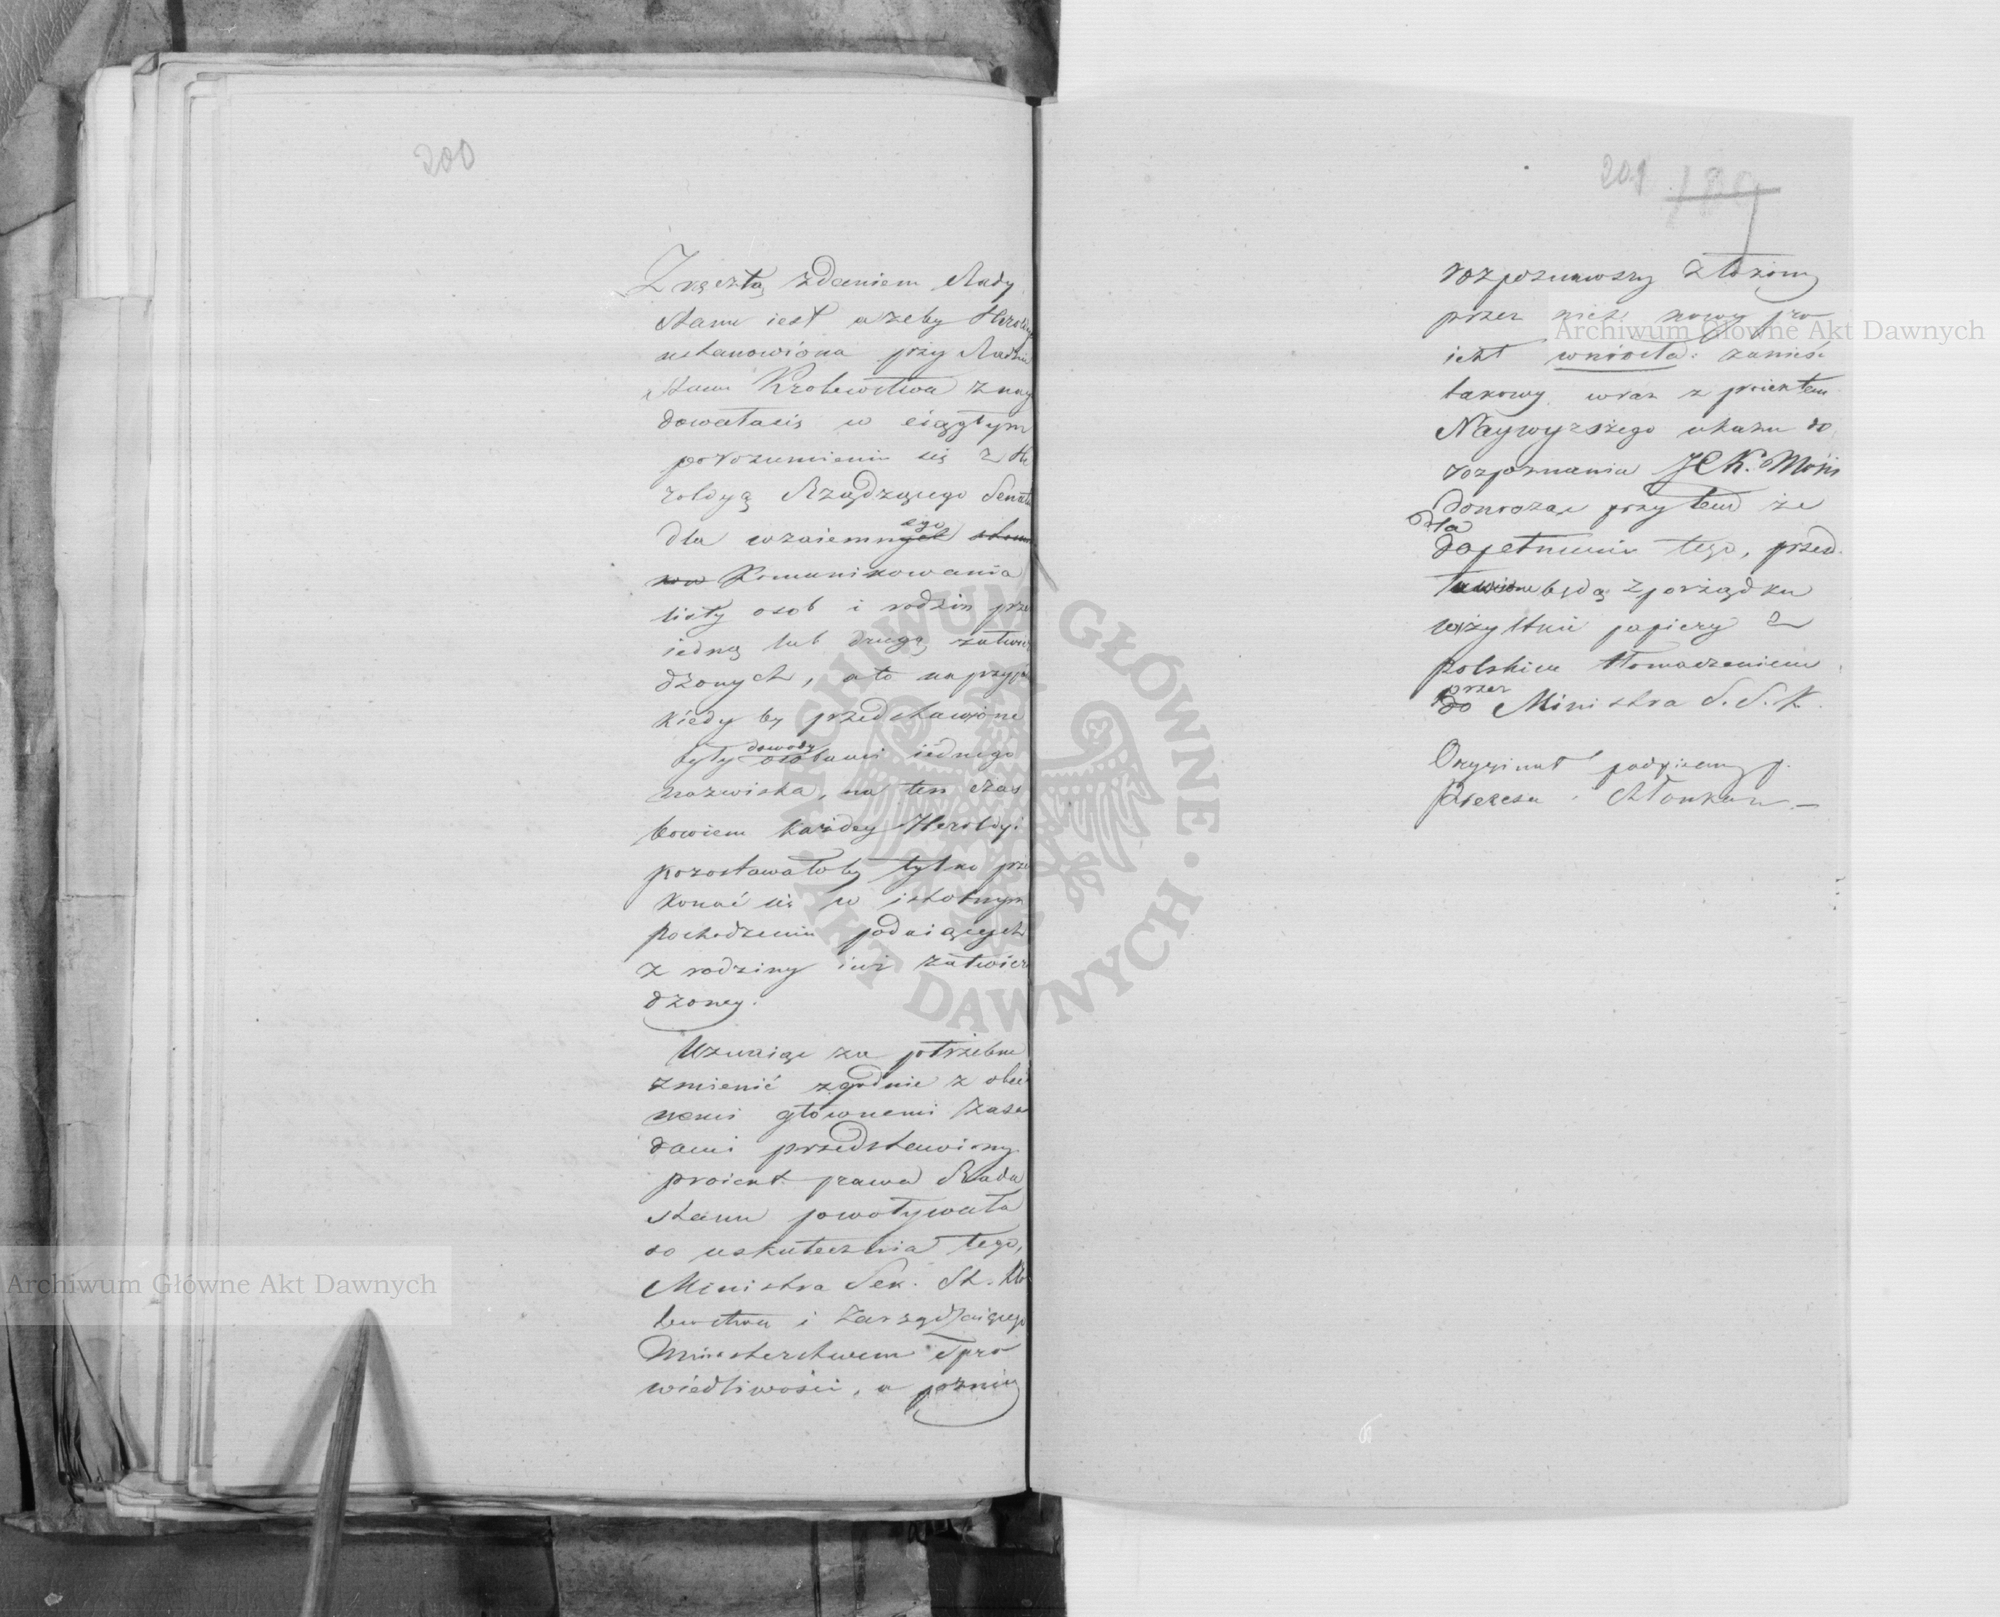 200
Zresztą zdaniem Rady
stanu iest ażeby Heroldya
ustanowiona przy Radzie
stanu Krolewstwa znay
dowałasię w ciągłym
porozumieniu się z He
roldyą Rządzącego Senatu
dla wzaiemnych ego
Komunikowania
listy osob i rodzin prze
iedną lub drugą zatwier
dzonych, a to naprzyp
kiedy by przedstawione
były dowody osobami iednego
nazwiska, na ten czas
bowiem każdey Heroldyi
pozostawałoby tylko prze
konać się w istotnym
pochodzeniu podaiących
z rodziny iuż zatwier
dzoney.
Uznaiąc za potrzebne
zmienić zgodnie z obec
nemi głównemi zasa
dami przedstawiony
proiekt prawa Rada
stanu powoływała
do uskutecznia tego,
Ministra Sek. St. Kro
lewstwa i Zarządzaiącego
Ministerstwem Spra
wiedliwości, a poźniey
201 189
rozpoznawszy złożony
przez nich nowy pro
iekt wniosła: zanieść
takowy wraz z proiektem
Naywyższego ukazu do
rozpoznania JCK. Mości
donosząc przytem że
dla
dopełnienia tego, przed
stawione będą zporządku
wszystkie papiery z
polskiem tłomaczeniem
przez
do Ministra S. S. K.
Oryginał podpisany p.
Prezesa i Członków —
Archiwum Główne Akt Dawnych
Archiwum Główne Akt Dawnych
ARCHIWUM GŁÓWNE AKT DAWNYCH